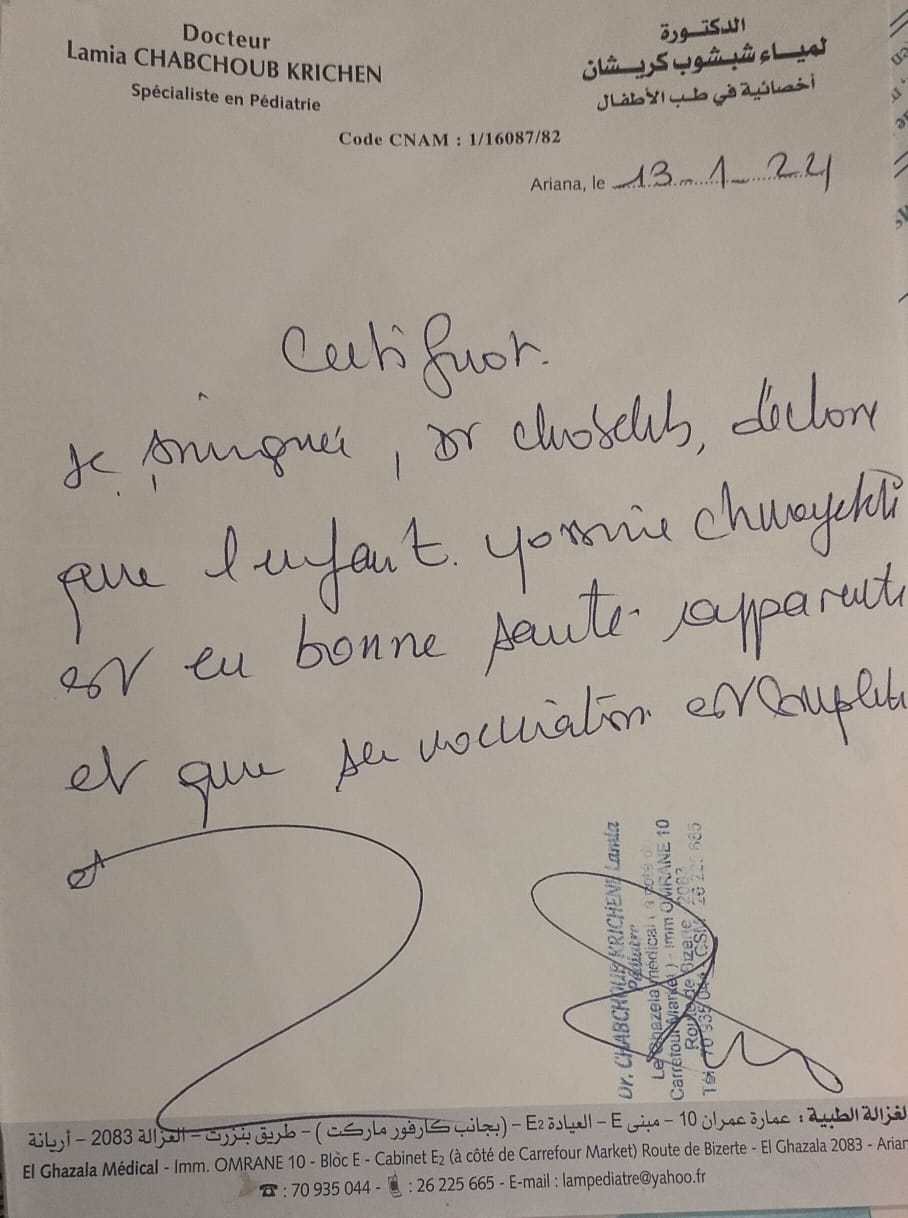 Docteur
Lamia CHABCHOUB KRICHEN
Spécialiste en Pédiatrie
الدكتورة
لمياء شبشوب كريشان
أخصائية في طب الأطفال
Code CNAM : 1/16087/82
Ariana, le 13-1-24
Certificat.
Je soussignée, Dr Chabchoub, déclare
que l'enfant
est en bonne santé apparente
et que sa vaccination est complète
et
Dr. CHABCHOUB KRICHENE Lamia
Pédiatre
Carrefour Market) - Imm OMRANE 10
Route de Bizerte 2083
الغزالة الطبية : عمارة عمران 10 - مبنى E - العيادة E2 - (بجانب كارفور ماركت) - طريق بنزرت - الغزالة 2083 - أريانة
El Ghazala Médical - Imm. OMRANE 10 - Bloc E - Cabinet E2 (à côté de Carrefour Market) Route de Bizerte - El Ghazala 2083 - Arian
☎ : 70 935 044 - 📱 : 26 225 665 - E-mail : lampediatre@yahoo.fr